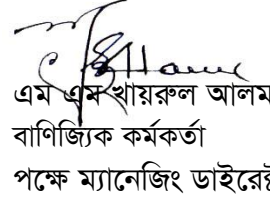 এম এম খায়রুল আলম
বাণিজ্যিক কর্মকর্তা
পক্ষে ম্যানেজিং ডাইরেক্ট